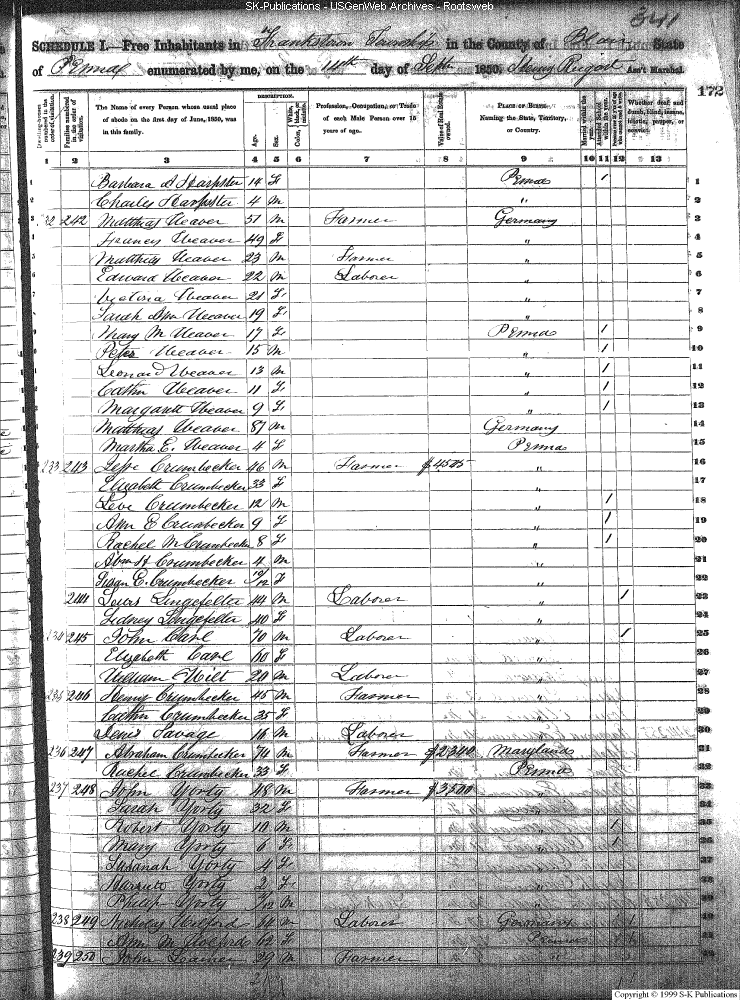 SK-Publications - USGenWeb Archives - Rootsweb
341
SCHEDULE I.—Free Inhabitants in Frankstown Township in the County of Blair State
of Penna enumerated by me, on the 14th day of Septr 1850. Ass't Marshal.
172
Dwelling-houses numbered in the order of visitation.
Families numbered in the order of visitation.
The Name of every Person whose usual place of abode on the first day of June, 1850, was in this family.
DESCRIPTION.
Age.
Sex.
Color, White, black, or mulatto.
Profession, Occupation, or Trade of each Male Person over 15 years of age.
Value of Real Estate owned.
PLACE OF BIRTH. Naming the State, Territory, or Country.
Married within the year.
Attended School within the year.
Whether deaf and dumb, blind, insane, idiotic, pauper, or convict.
1 2 3 4 5 6 7 8 9 10 11 12 13
1 Barbara A Harpster 14 F Penna / 1
2 Charles Harpster 4 M " 2
3 232 242 Matthias Weaver 51 M Farmer Germany 3
4 Frances Weaver 49 F " 4
5 Matthias Weaver 23 M Farmer " 5
6 Edward Weaver 22 M Laborer " 6
7 Victoria Weaver 21 F " 7
8 Sarah Ann Weaver 19 F " 8
9 Mary M Weaver 17 F Penna / 9
10 Peter Weaver 15 M " / 10
11 Leonard Weaver 13 M " / 11
12 Cathn Weaver 11 F " / 12
13 Margarett Weaver 9 F " / 13
14 Matthias Weaver 87 M Germany 14
15 Martha E. Weaver 4 F Penna 15
16 233 243 Jesse Crumbecker 46 M Farmer $4505 " 16
17 Elizabeth Crumbecker 33 F " 17
18 Levi Crumbecker 12 M " / 18
19 Ann E Crumbecker 9 F " / 19
20 Rachel M Crumbecker 8 F " / 20
21 Abm H Crumbecker 4 M " 21
22 Susan E. Crumbecker 10/12 F " 22
23 244 Louis Lingefelter 44 M Laborer " / 23
24 Sidney Lingefelter 40 F " 24
25 234 245 John Carl 70 M Laborer " / 25
26 Elizabeth Carl 60 F " 26
27 William Wilt 20 M Laborer " 27
28 235 246 Henry Crumbecker 45 M Farmer " 28
29 Cathn Crumbecker 35 F " 29
30 Lewis Savage 16 M Laborer " 30
31 236 247 Abraham Crumbecker 74 M Farmer $2340 Maryland 31
32 Rachel Crumbecker 33 F Penna 32
33 237 248 John Yorty 48 M Farmer $3500 " 33
34 Sarah Yorty 32 F " 34
35 Robert Yorty 10 M " / 35
36 Mary Yorty 6 F " / 36
37 Susanah Yorty 4 F " 37
38 Harriett Yorty 2 F " 38
39 Philip Yorty M " 39
40 238 249 Nicholas 64 M Laborer Germany / 40
41 Ann M 62 F Penna / 41
42 239 250 John 29 M Farmer " 42
Copyright © 1999 S-K Publications